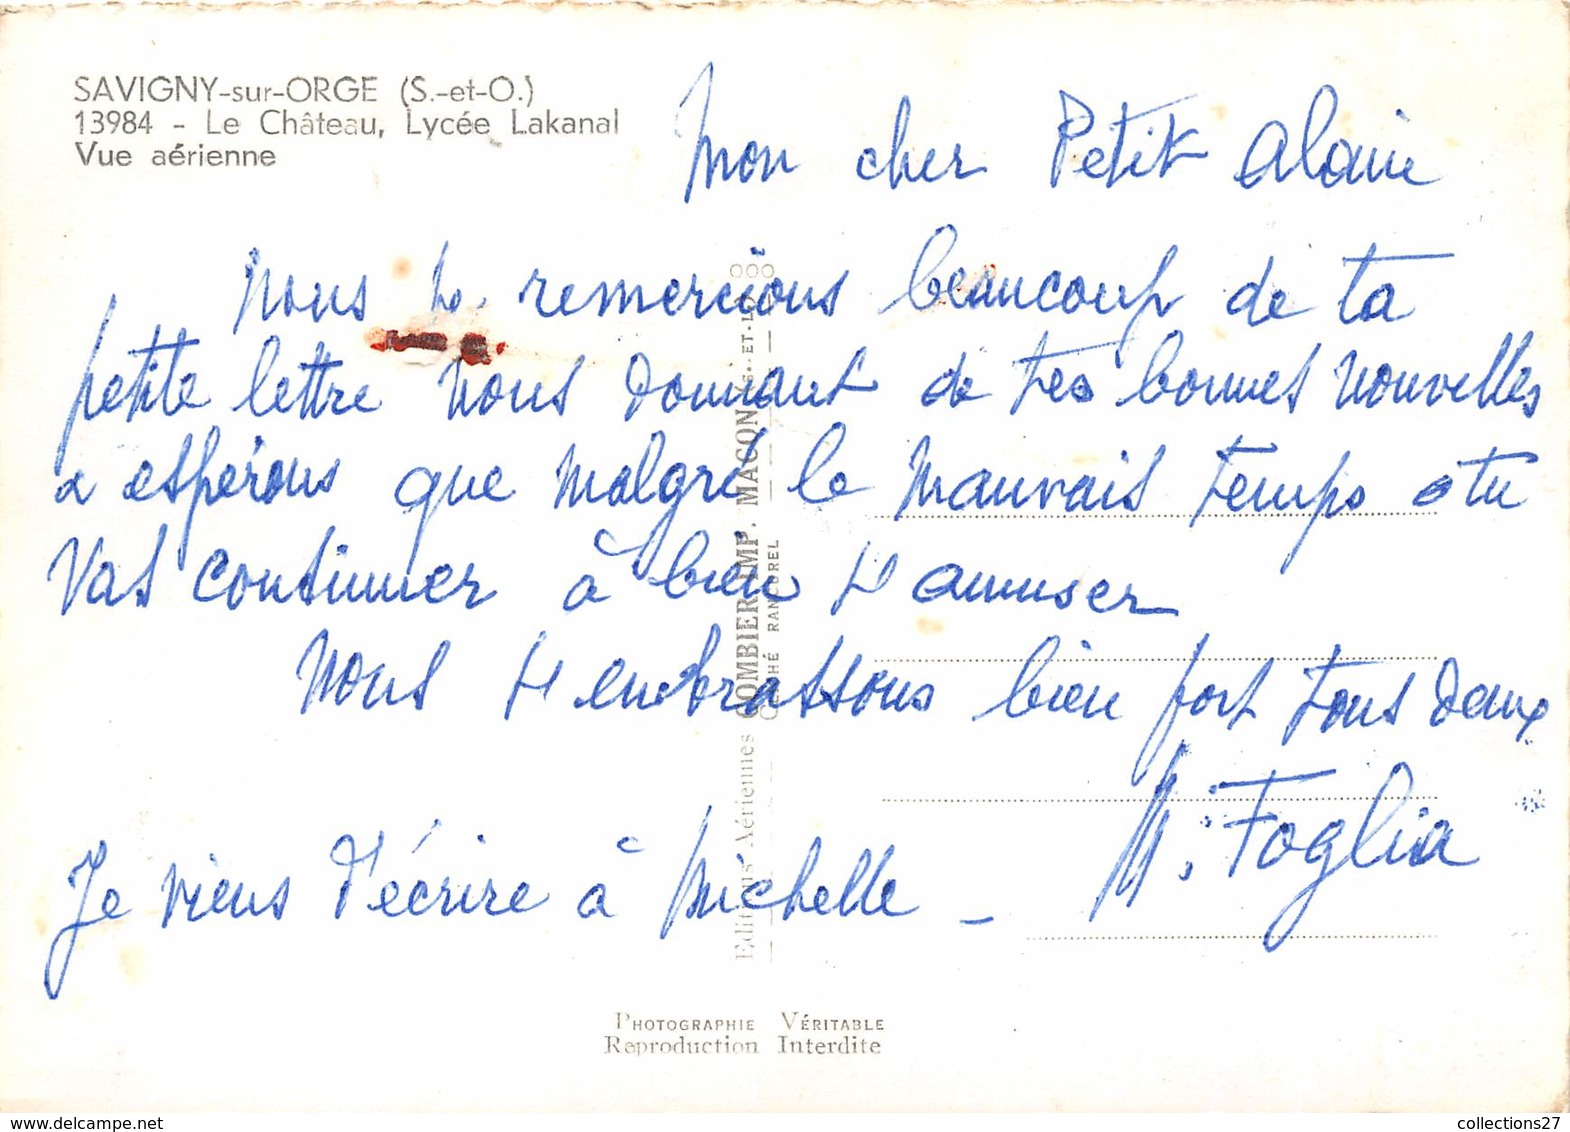 SAVIGNY-sur-ORGE (S.-et-O.)
13984 - Le Château, Lycée Lakanal
Vue aérienne
Mon cher Petit Alain
Nous te remercions beaucoup de ta
petite lettre nous donnant de tes bonnes nouvelles
& espérons que malgré le mauvais temps tu
vas continuer à bien t'amuser
Nous t'embrassons bien fort tous deux
M. Foglia
Je viens d'écrire à Michelle -
Editions Aériennes COMBIER IMP. MACON (S.-ET-L.)
CLICHÉ RANCUREL
PHOTOGRAPHIE VÉRITABLE
Reproduction Interdite
collections27